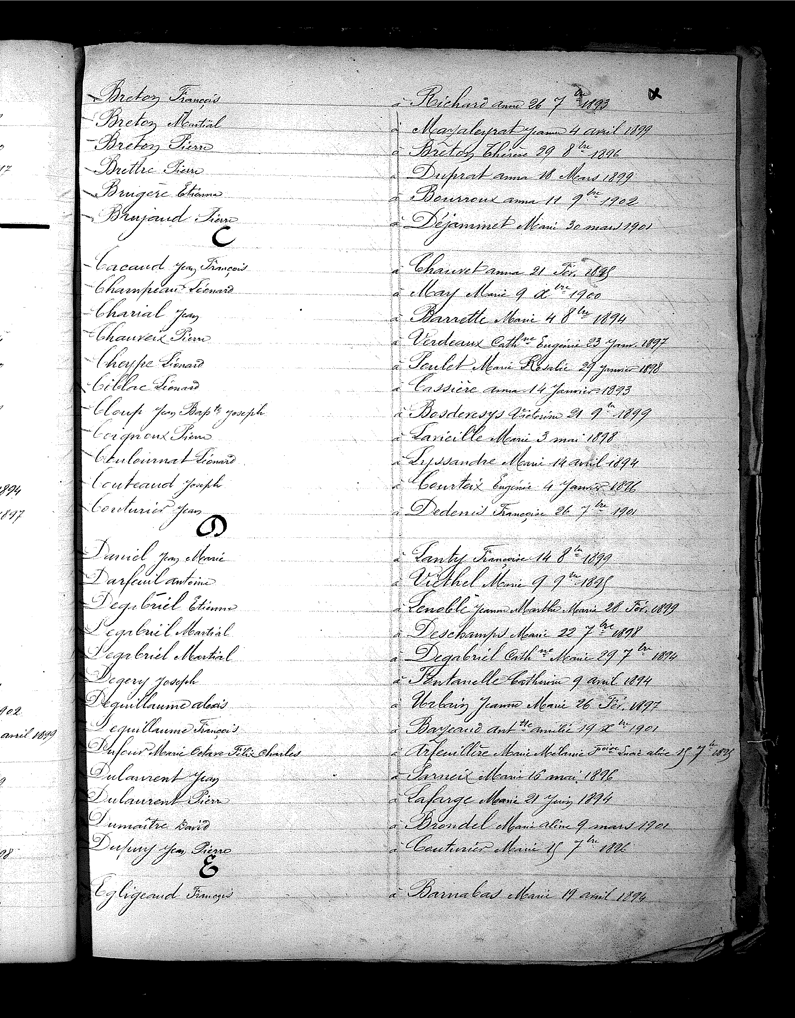 Breton François à Richard anne 26 7bre 1893
Breton Martial à Mazaleyrat Jeanne 4 avril 1899
Breton Pierre à Breton Thérèse 29 8bre 1896
Brettre Pierre à Duprat anna 18 Mars 1899
Brugère Etienne à Bourroux anna 11 9bre 1902
Brujaud Pierre à Déjammet Marie 30 mars 1901
C
Cacaud Jean François à Chauvet anna 21 Fév. 1895
Champeau Léonard à May Marie 9 Xbre 1900
Charial Jean à Barrette Marie 4 8bre 1894
Chauveix Pierre à Verdeaux Cathne Eugénie 23 Janv. 1897
Cheype Léonard à Poulet Marie Rosalie 29 Janvier 1898
Ciblac Léonard à Cassière anna 14 Janvier 1893
Cloup Jean Bapte Joseph à Victorine 21 9bre 1899
Coignoux Pierre à Lavieille Marie 3 mai 1898
Coulournat Léonard à Lyssandre Marie 14 avril 1894
Couteaud Joseph à Courteix Eugénie 4 Janvier 1896
Couturier Jean à Dedenis Françoise 26 7bre 1901
D
Daniel Jean Marie à Lanty Françoise 14 8bre 1899
Darfeuil antoine à Viethel Marie 9 9bre 1895
Degabriel Etienne à Lenoble Jeanne Marthe Marie 28 Fév. 1899
Degabriel Martial à Deschamps Marie 22 7bre 1898
Degabriel Martial à Degabriel Cathne Marie 29 7bre 1894
Degery Joseph à Fontanelle Catherine 9 avril 1894
Deguillaume alexis à Urbain Jeanne Marie 26 Fév. 1897
Deguillaume François à Barjeaud antte amélie 19 Xbre 1901
Dufour Marie Octave Félix Charles à Arfeuillère Marie Mélanie alice 15 7bre 1895
Dulaurent Jean à Sarneix Marie 16 mai 1896
Dulaurent Pierre à Lafarge Marie 21 Juin 1894
Dumaître David à Brondel Marie aline 9 mars 1901
Dupuy Jean Pierre à Couturier Marie 15 7bre 1896
E
Egligeaud François à Barnabas Marie 19 avril 1894
1894
1897
1902
avril 1899